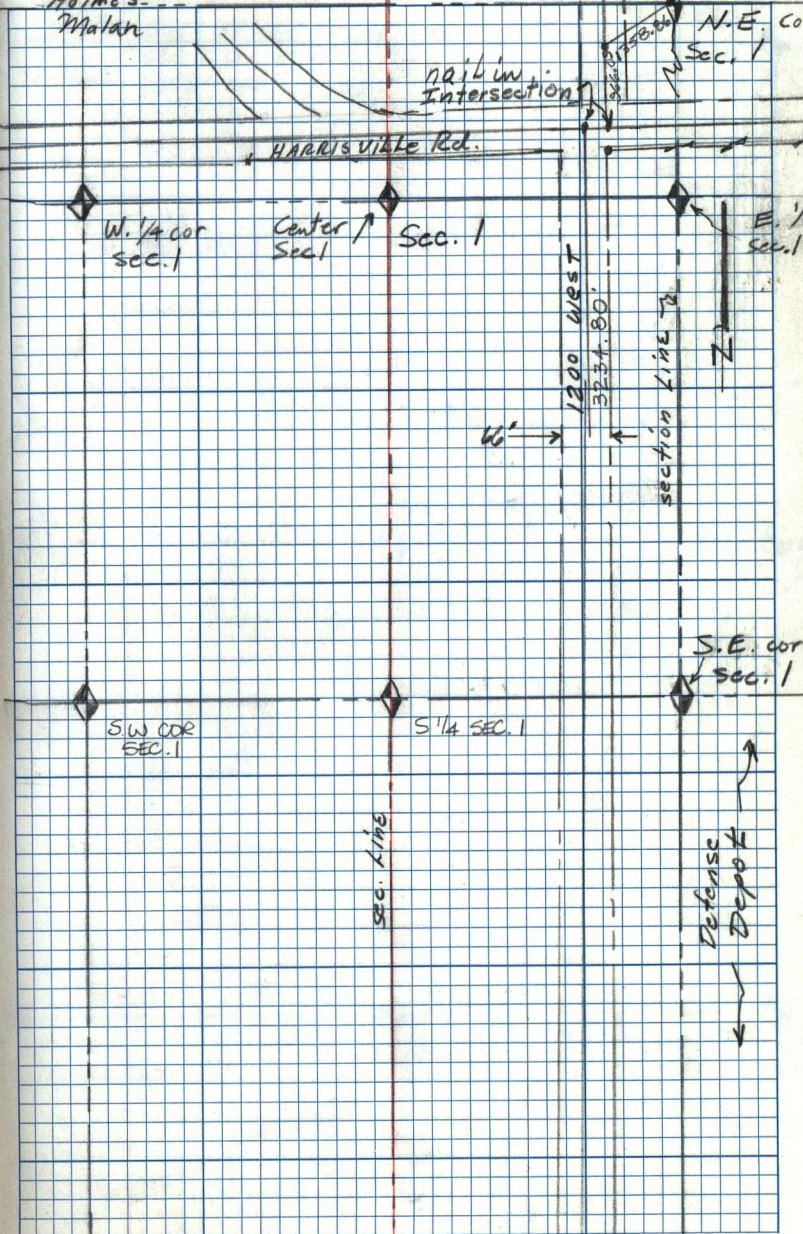 Malan
N.E. Co
Sec. 1
1358.86
nail in
Intersection
HARRISVILLE Rd.
W. 1/4 cor
Sec. 1
Center
Sec 1
Sec. 1
E. 1/
sec. 1
1200 West
3234.80'
section Line
N
66'
S.E. cor
sec. 1
S.W COR
SEC. 1
S 1/4 SEC. 1
sec. Line
Defense
Depot